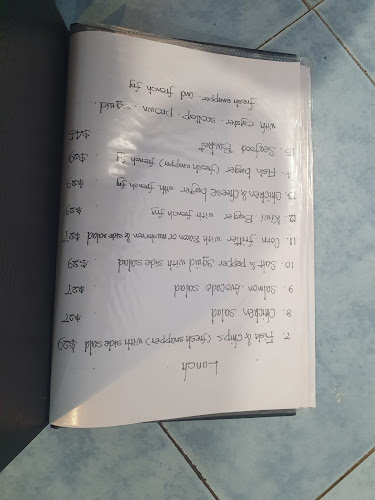 Lunch
7. Fish & Chips (fresh snapper) with side salad $29
8. Chicken salad $27
9. Salmon Avocado salad $27
10. Salt & pepper squid with side salad $29
11. Corn fritter with Bacon or mushroom & side salad $27
12. Kiwi Burger with french fry $29
13. Chicken & Cheese burger with french fry $29
14. Fish burger (fresh snapper) french fry $29
15. Seafood Basket $45
with oyster. scallop. prawn. squid.
fresh snapper and french fry